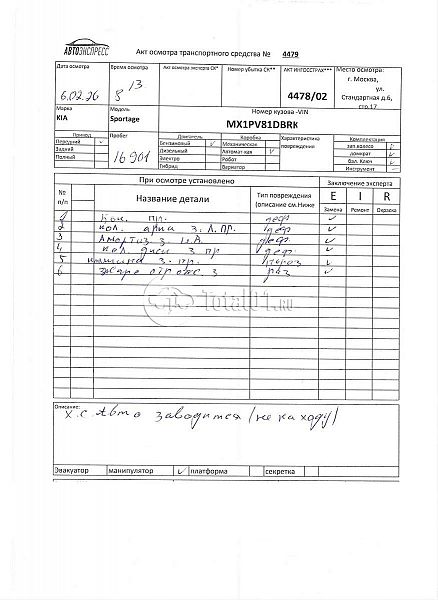 АВТОЭКСПРЕСС
Акт осмотра транспортного средства № 4479
Дата осмотра Время осмотра Акт осмотра эксперта СК* Номер убытка СК** АКТ ИНГОССТРАХ*** Место осмотра:
г. Москва,
ул.
Стандартная д.6,
стр.17
6.02.26 8 13 4478/02
Марка Модель Номер кузова -VIN
KIA Sportage MX1PV81DBRK
Привод Пробег Двигатель Коробка Характеристика повреждения Комплектация
Передний ✓ Бензиновый ✓ Механическая зап.колесо
Задний Дизельный Автомат-кая ✓ домкрат
Полный 16 901 Электро Робот бал. Ключ ✓
Гибрид Вариатор Инструмент
При осмотре установлено Заключение эксперта
№ п/п Название детали Тип повреждения (описание см.Ниже E I R
Замена Ремонт Окраска
1 деф ✓
2 кол. арка з. л. пр. деф ✓
3 Аморт з. деф. ✓
4 кол. диск з пр деф. ✓
5 шина з. пр. порез ✓
6 з раз ✓
Total01.RU
Описание:
Х.С. Авто заводится (не на ходу)
Эвакуатор манипулятор ✓ платформа секретка